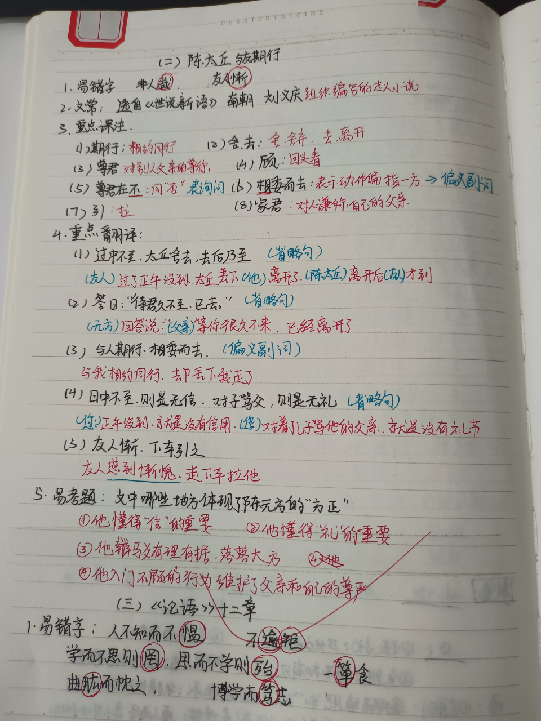 (二) 陈太丘与友期行
1.易错字 非人哉 友人惭
2.文常: 选自《世说新语》 南朝 刘义庆组织编写的志人小说
3.重点课注:
(1)期行:相约同行 (2)舍.去:舍弃,去,离开
(3)尊君 对别人父亲的尊称 (4)顾:回头看
(5)尊君在不:同“否”表询问 (6)相委而去:表示动作偏指一方→偏义副词
(7)引:拉 (8)家君:对人谦称自己的父亲
4.重点翻译:
(1)过中不至,太丘舍去,去后乃至 (省略句)
(友人)过了正午没到 太丘丢下(他)离开了,(陈太丘)离开后(友人)才到
(2)答曰:“待君久不至,已去。” (省略句)
(元方)回答说:(父亲)等你很久不来,已经离开了
(3)与人期行,相委而去. (偏义副词)
与我相约同行,却丢下我走了
(4)日中不至,则是无信,对子骂父,则是无礼 (省略句)
(您)正午没到,就是没有信用,(您)对着儿子骂他的父亲,就是没有礼节
(5)友人惭,下车引之
友人感到惭愧,走下车拉他
5.易考题:文中哪些地方体现了陈元方的“方正”
①他懂得“信”的重要 ②他懂得“礼”的重要
③他辩驳有理有据,落落大方 ④他
④他入门不顾的行为维护了父亲和自己的尊严
(三)《论语》十二章
1.易错字:人不知而不愠 不逾矩
学而不思则罔,思而不学则殆 一箪食
曲肱而枕之, 博学而笃志